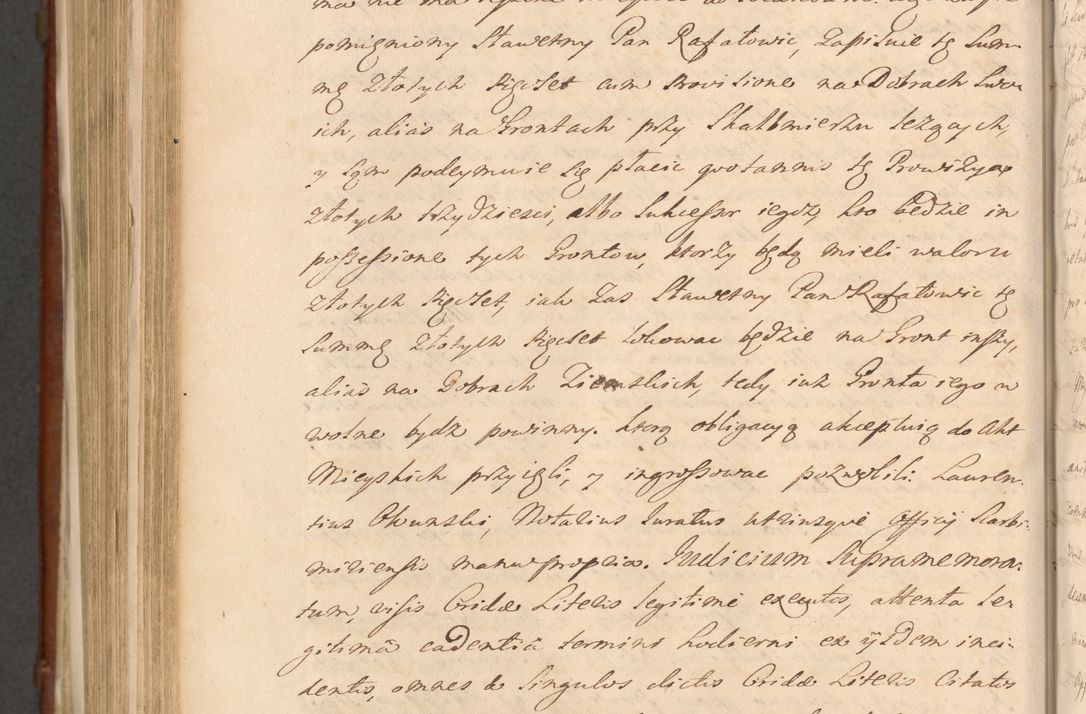 pomięniony Sławetny Pan Rafałowic, Zapisuie tę Sum
mę Złotych Pięcset cum Provisione na Dobrach Swo
ich, alias na Grontach przy Skalbmierzu leżących,
y sam podeymuie się płacic quotannis tę Prowizyą
złotych trzydziesci, albo Sukcessor iegoż, kto będzie in
possessione tych Grontow, ktorzy będą mieli waloru
Złotych Pięcset, iak zas Sławetny Pan Rafałowic tę
Summę Złotych Pięcset lokowac będzie na Gront inszy,
alias na Dobrach Ziemskich, tedy iuż Gronta iego w
wolne bydz powinny. ktorą obligacyą akceptuią do Akt
Mieyskich przyięli, y ingrossowac pozwolili: Lauren-
tius Okunski, Notarius Juratus utriusque Officij Scarbi-
miriensis manu propria. Judicium Supramemora-
tum, visis Cridae Literis legitimè executis, attenta le-
gitimâ cadentiâ termini hodierni ex ijsdem inci-
dentis, omnes et Singulos dictis Cridae Literis Citatos